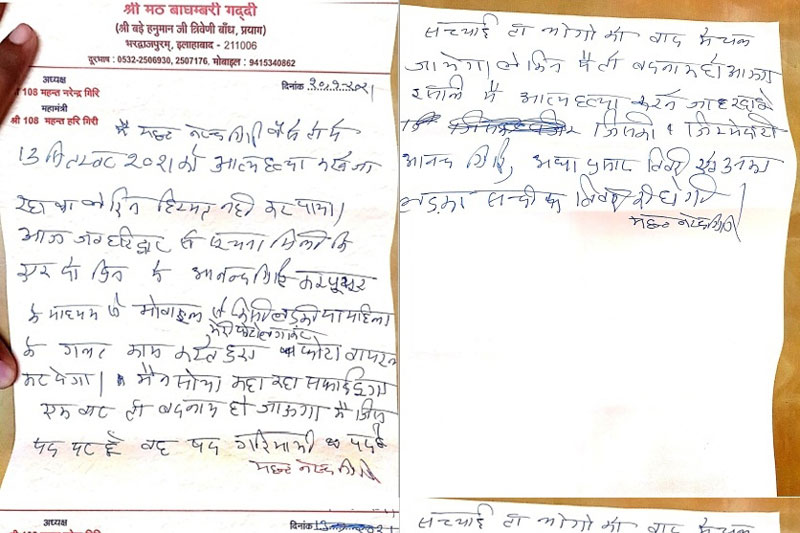 श्री मठ बाघम्बरी गद्दी
(श्री बड़े हनुमान जी त्रिवेणी बाँध, प्रयाग)
भरद्वाजपुरम्, इलाहाबाद - 211006
दूरभाष : 0532-2506930, 2507176, मोबाइल : 9415340862
अध्यक्ष
श्री 108 महन्त नरेन्द्र गिरि
महामंत्री
श्री 108 महन्त हरि गिरी
दिनांक
मै महन्त नरेन्द्र गिरि वैसे तो मै
13 सितम्बर 2021 को आत्महत्या करने जा
रहा था लेकिन हिम्मत नही कर पाया।
आज जब हरिद्वार से सूचना मिली कि
एक दो दिन मे आनन्द गिरि कम्प्यूटर
के माध्यम से मोबाइल से किसी लड़की या महिला
मेरी फोटो लगाकर
के गलत काम करते हुए फोटो वायरल
कर देगा। मैने सोचा कहा तक सफाई दूंगा
एक बार तो बदनाम हो जाऊगा मै जिस
पद पर हूं वह पद गरिमामयी पद है
महन्त नरेन्द्र गिरि
सच्चाई तो लोगो को बाद मे चल
जायेगा लेकिन मै तो बदनाम हो जाऊगा
इसलिए मै आत्महत्या करने जा रहा हूं
जिसकी जिम्मेदारी
आनन्द गिरि, आद्या प्रसाद तिवारी एवं उनका
लड़का सन्दीप तिवारी की होगी
महन्त नरेन्द्र गिरि
अध्यक्ष
दिनांक
सच्चाई तो लोगो को बाद मे चल